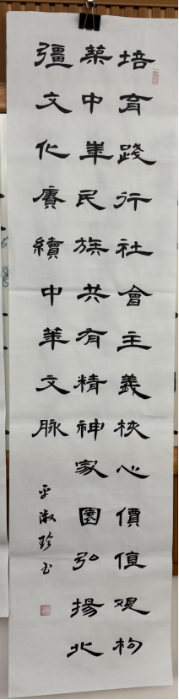 培育踐行社會主義核心價值觀构
築中華民族共有精神家園弘揚北
彊文化賡續中華文脈
平淑珍书